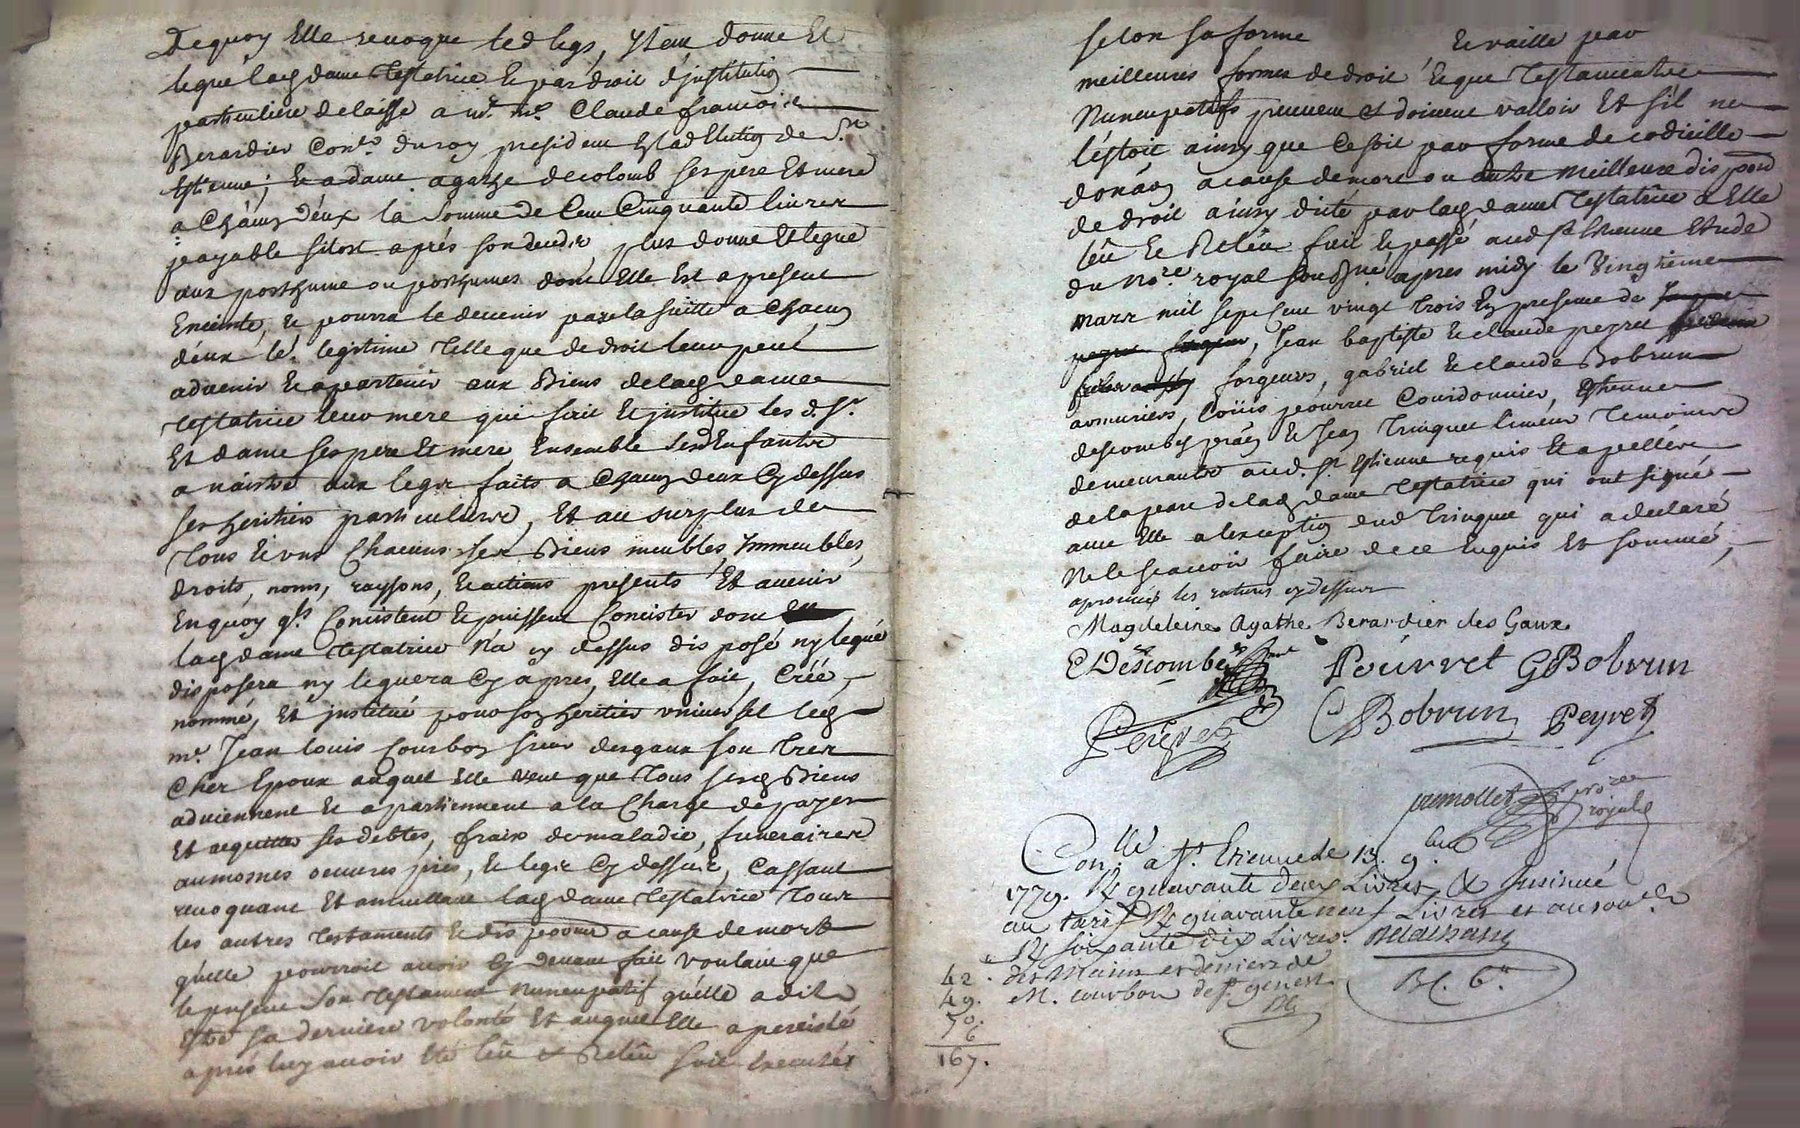 Dequoy Elle revoque led legs, Item donne Et
legue lad dame Testatrice Et par droit d'justitution
particuliere delaisse a mr. me. Claude francois
Berardier Conler. du roy president En lad Election de St.
Estienne; Et a dame agathe decolomb ses pere Et mere
a Chacun d'eux la somme de Cent Cinquante livres
payable sitost aprés son deceds plus donne Et legue
aux posthume ou posthumes dont Elle Est a present
Enceinte, Et pourra le devenir par la suitte a Chacun
d'eux le legitime telle que de droit leur peut
advenir Et apartenir aux Biens de lad dame
Testatrice leur mere qui fait Et justitue les d. Sr.
Et dame ses pere Et mere Ensemble sesd Enfants
a naistre aux legs faits a Chacun deux Cy dessus
ses heritiers particuliers, Et au surplus de
Tous Et uns Chacuns ses Biens meubles, Immeubles,
droits, noms, raysons, Et actions presents Et avenir
En quoy qls. Consistent Et puissent Concister dont
lad dame Testatrice n'a cy dessus disposé ny legué
disposera ny leguera Cy aprés, Elle a fait, Créé,
nommé, Et justitué pour son heritier universel led
me. Jean louis Courbon sieur desgaux son tres
Cher Epoux auquel Elle veut que Tous sesd Biens
adviennent Et apartiennent a la Charge de payer
Et acquitter ses debtes, fraix de maladie, funeraires
aumosnes oeuvres pies, Et legs Cy dessus, Cassant
revoquant Et annullant lad dame Testatrice Tous
les autres Testaments Et disp̃ons a cause de mort
qu'elle pourroit avoir Cy devant fait voulant que
le present son Testament nuncupatif qu'elle a dit
Estre sa derniere volonté Et auquel Elle a percisté
aprés luy avoir Eté leu et Releu soit Executés
selon sa forme Et vaille par
meilleures formes de droit Et que Testaments
Nuncupatifs peuvent et doivent valloir Et s'il ne
l'estoit ainsy que Ce soit par forme de codicille
donãon a cause de mort ou autre meilleure dispõon
de droit ainsy dicté par lad dame Testatrice a Elle
leu Et Releu fait Et passé aud St Etienne Etude
du Nore. royal sousigné apres midy le Vingtieme
mars mil sept cent vingt trois En presence de
Jean baptiste Et claude peyret
forgeurs, gabriel Et claude Bobrun
armuriers, Loüis pourret Courdonnier, Estienne
descombes praen. Et Jean Trinquet limeur Temoins
demeurants aud. St Estienne requis Et apellés
de la part de lad dame Testatrice qui ont signé
avec Elle a l'exception dud Trinquet qui a declaré
Ne le scavoir faire de ce Enquis Et sommé,
aprouvé les ratures cy dessus
Magdeleine Agathe Berardier des Gaux
E Descombes
Pourret G Bobrun
Peyret
C Bobrun Peyret
premollet nore
royal
Conlle. a St. Etienne le 13. 9bre
1779. R quarante deux Livres & Insinué
au tarif R quarante neuf Livres et au 100e. d
R soixante dix Livres.
des Mains et deniers de
M. courbon de St. genest
42.
49.
70.
6
167.